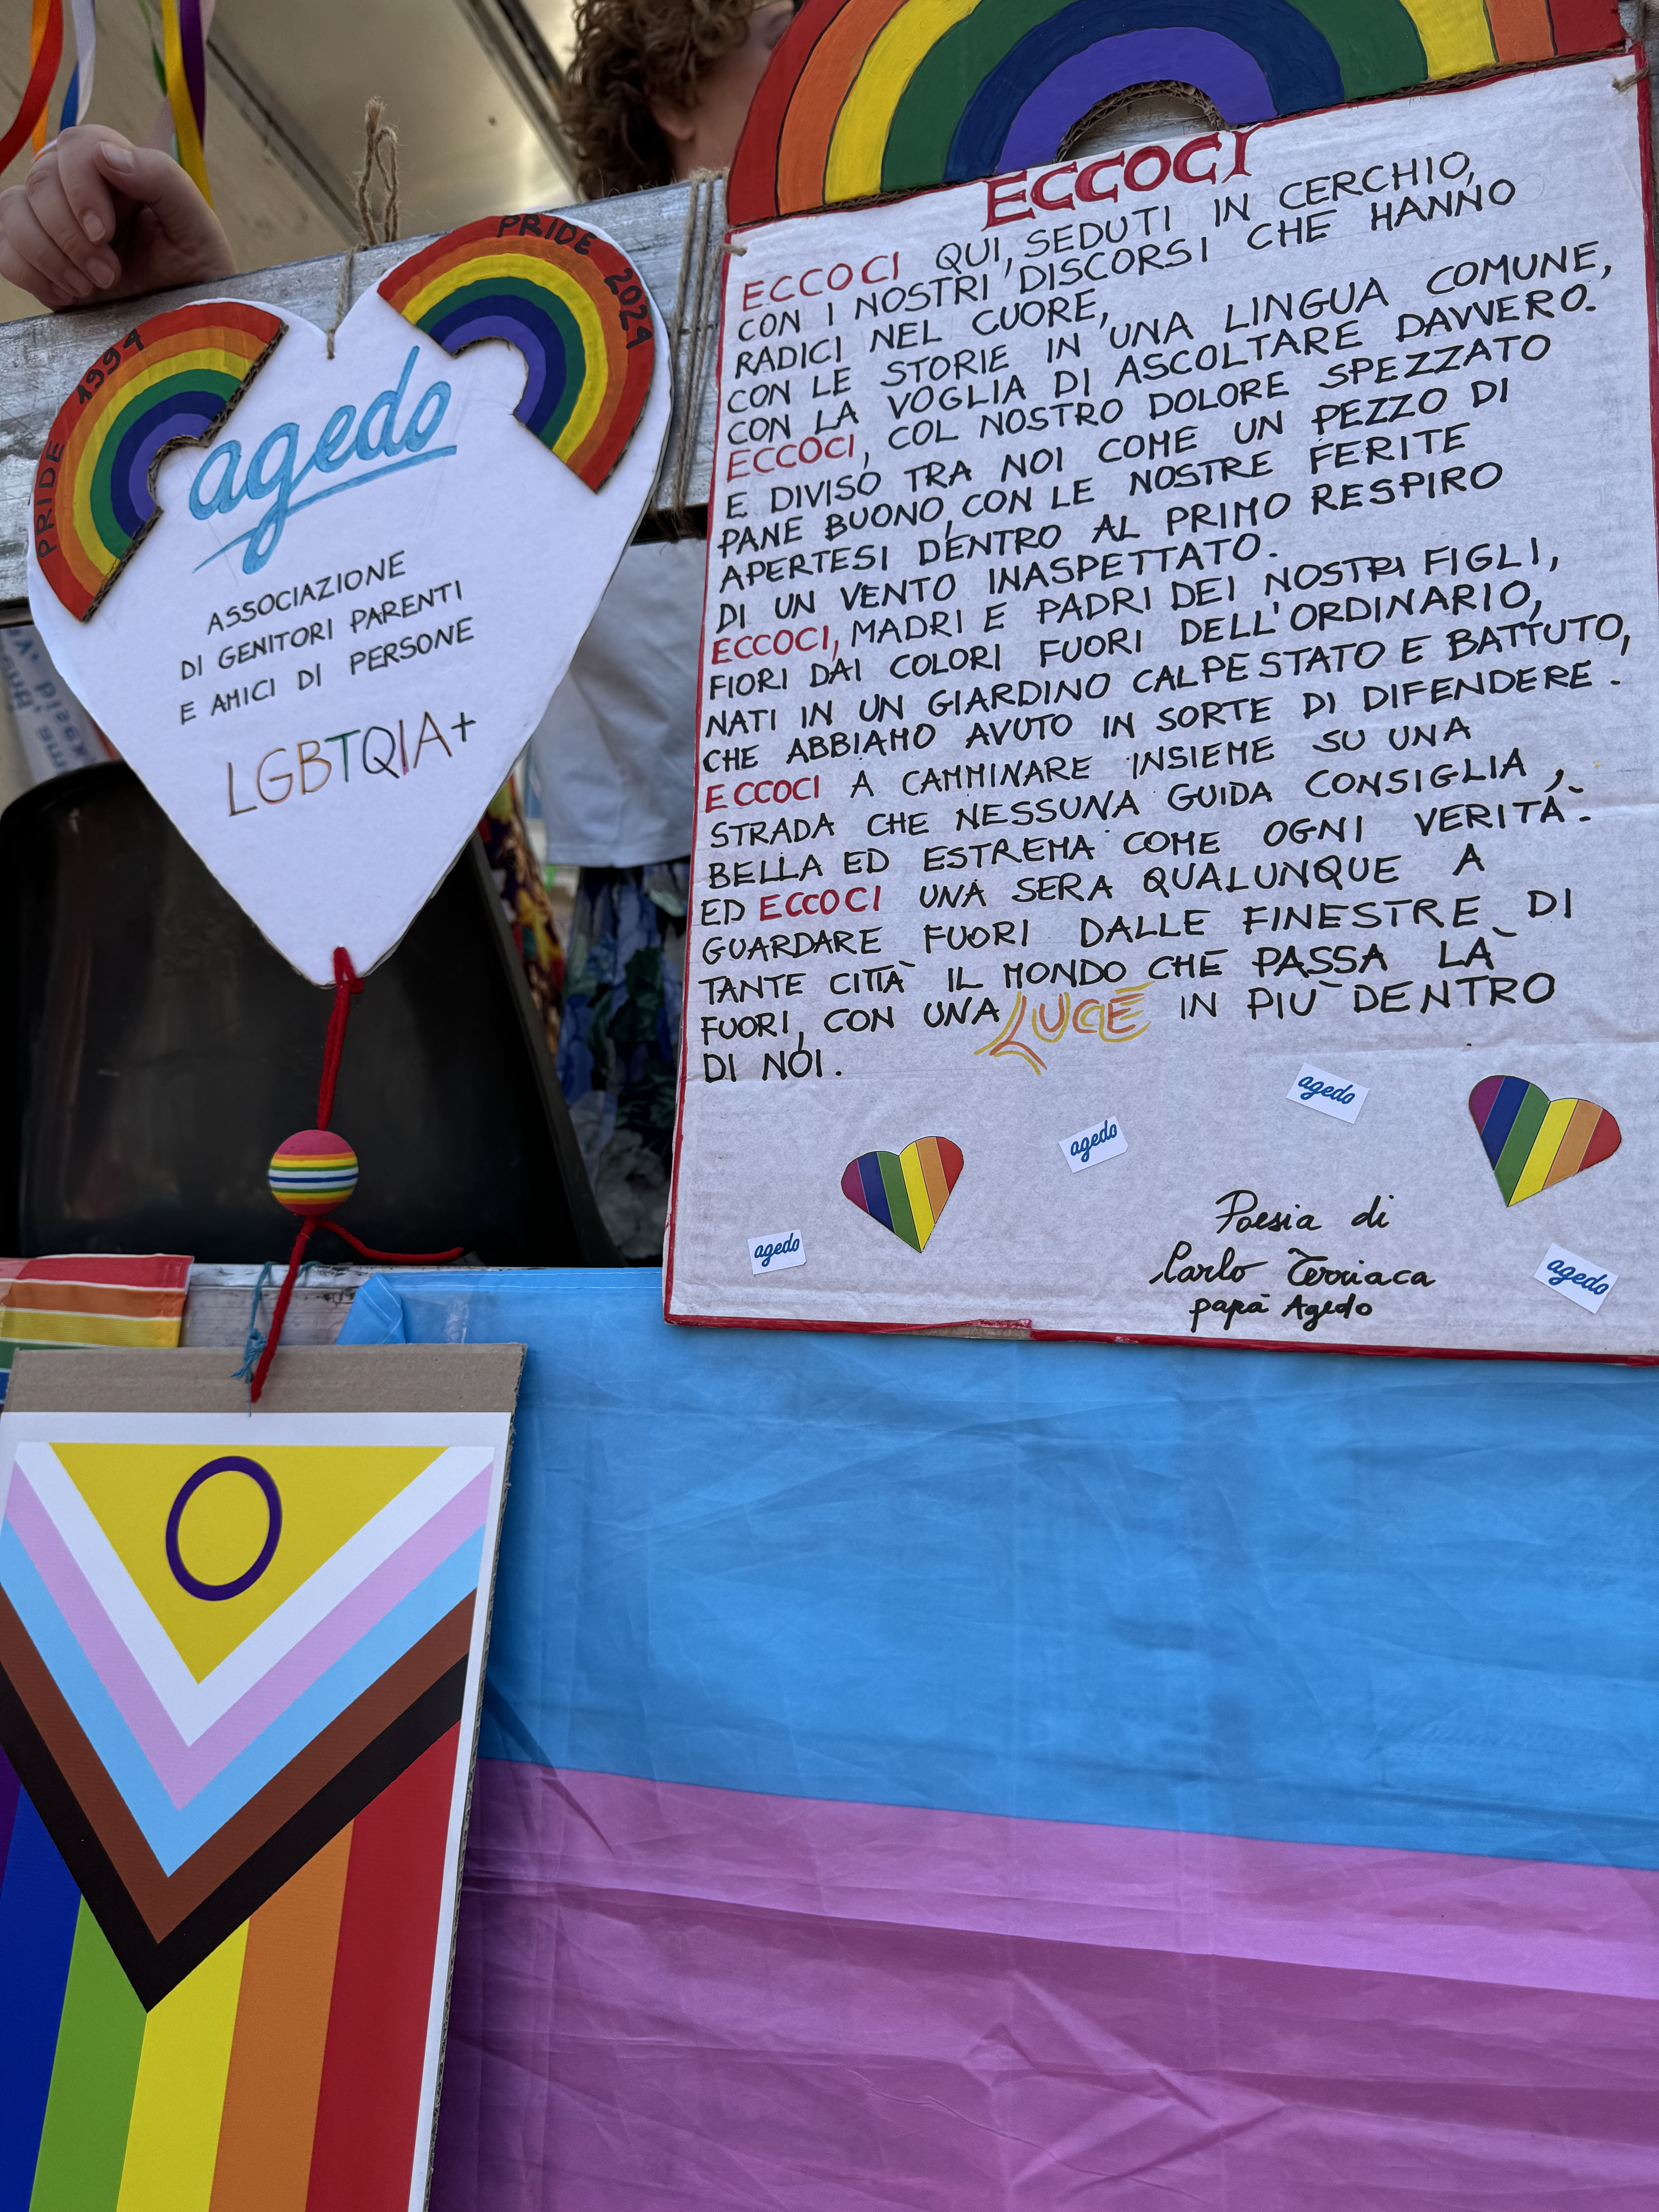 PRIDE 1994
PRIDE 2024
agedo
ASSOCIAZIONE
DI GENITORI PARENTI
E AMICI DI PERSONE
LGBTQIA+
ECCOCI
ECCOCI QUI, SEDUTI IN CERCHIO,
CON I NOSTRI DISCORSI CHE HANNO
RADICI NEL CUORE,
CON LE STORIE IN UNA LINGUA COMUNE,
CON LA VOGLIA DI ASCOLTARE DAVVERO.
ECCOCI, COL NOSTRO DOLORE SPEZZATO
E DIVISO TRA NOI COME UN PEZZO DI
PANE BUONO, CON LE NOSTRE FERITE
APERTESI DENTRO AL PRIMO RESPIRO
DI UN VENTO INASPETTATO.
ECCOCI, MADRI E PADRI DEI NOSTRI FIGLI,
FIORI DAI COLORI FUORI DELL'ORDINARIO,
NATI IN UN GIARDINO CALPESTATO E BATTUTO,
CHE ABBIAMO AVUTO IN SORTE DI DIFENDERE.
ECCOCI A CAMMINARE INSIEME SU UNA
STRADA CHE NESSUNA GUIDA CONSIGLIA,
BELLA ED ESTREMA COME OGNI VERITÀ.
ED ECCOCI UNA SERA QUALUNQUE A
GUARDARE FUORI DALLE FINESTRE DI
TANTE CITTÀ IL MONDO CHE PASSA LÀ
FUORI, CON UNA LUCE IN PIÙ DENTRO
DI NOI.
agedo
agedo
agedo
agedo
Poesia di
Carlo Terriaca
papà Agedo